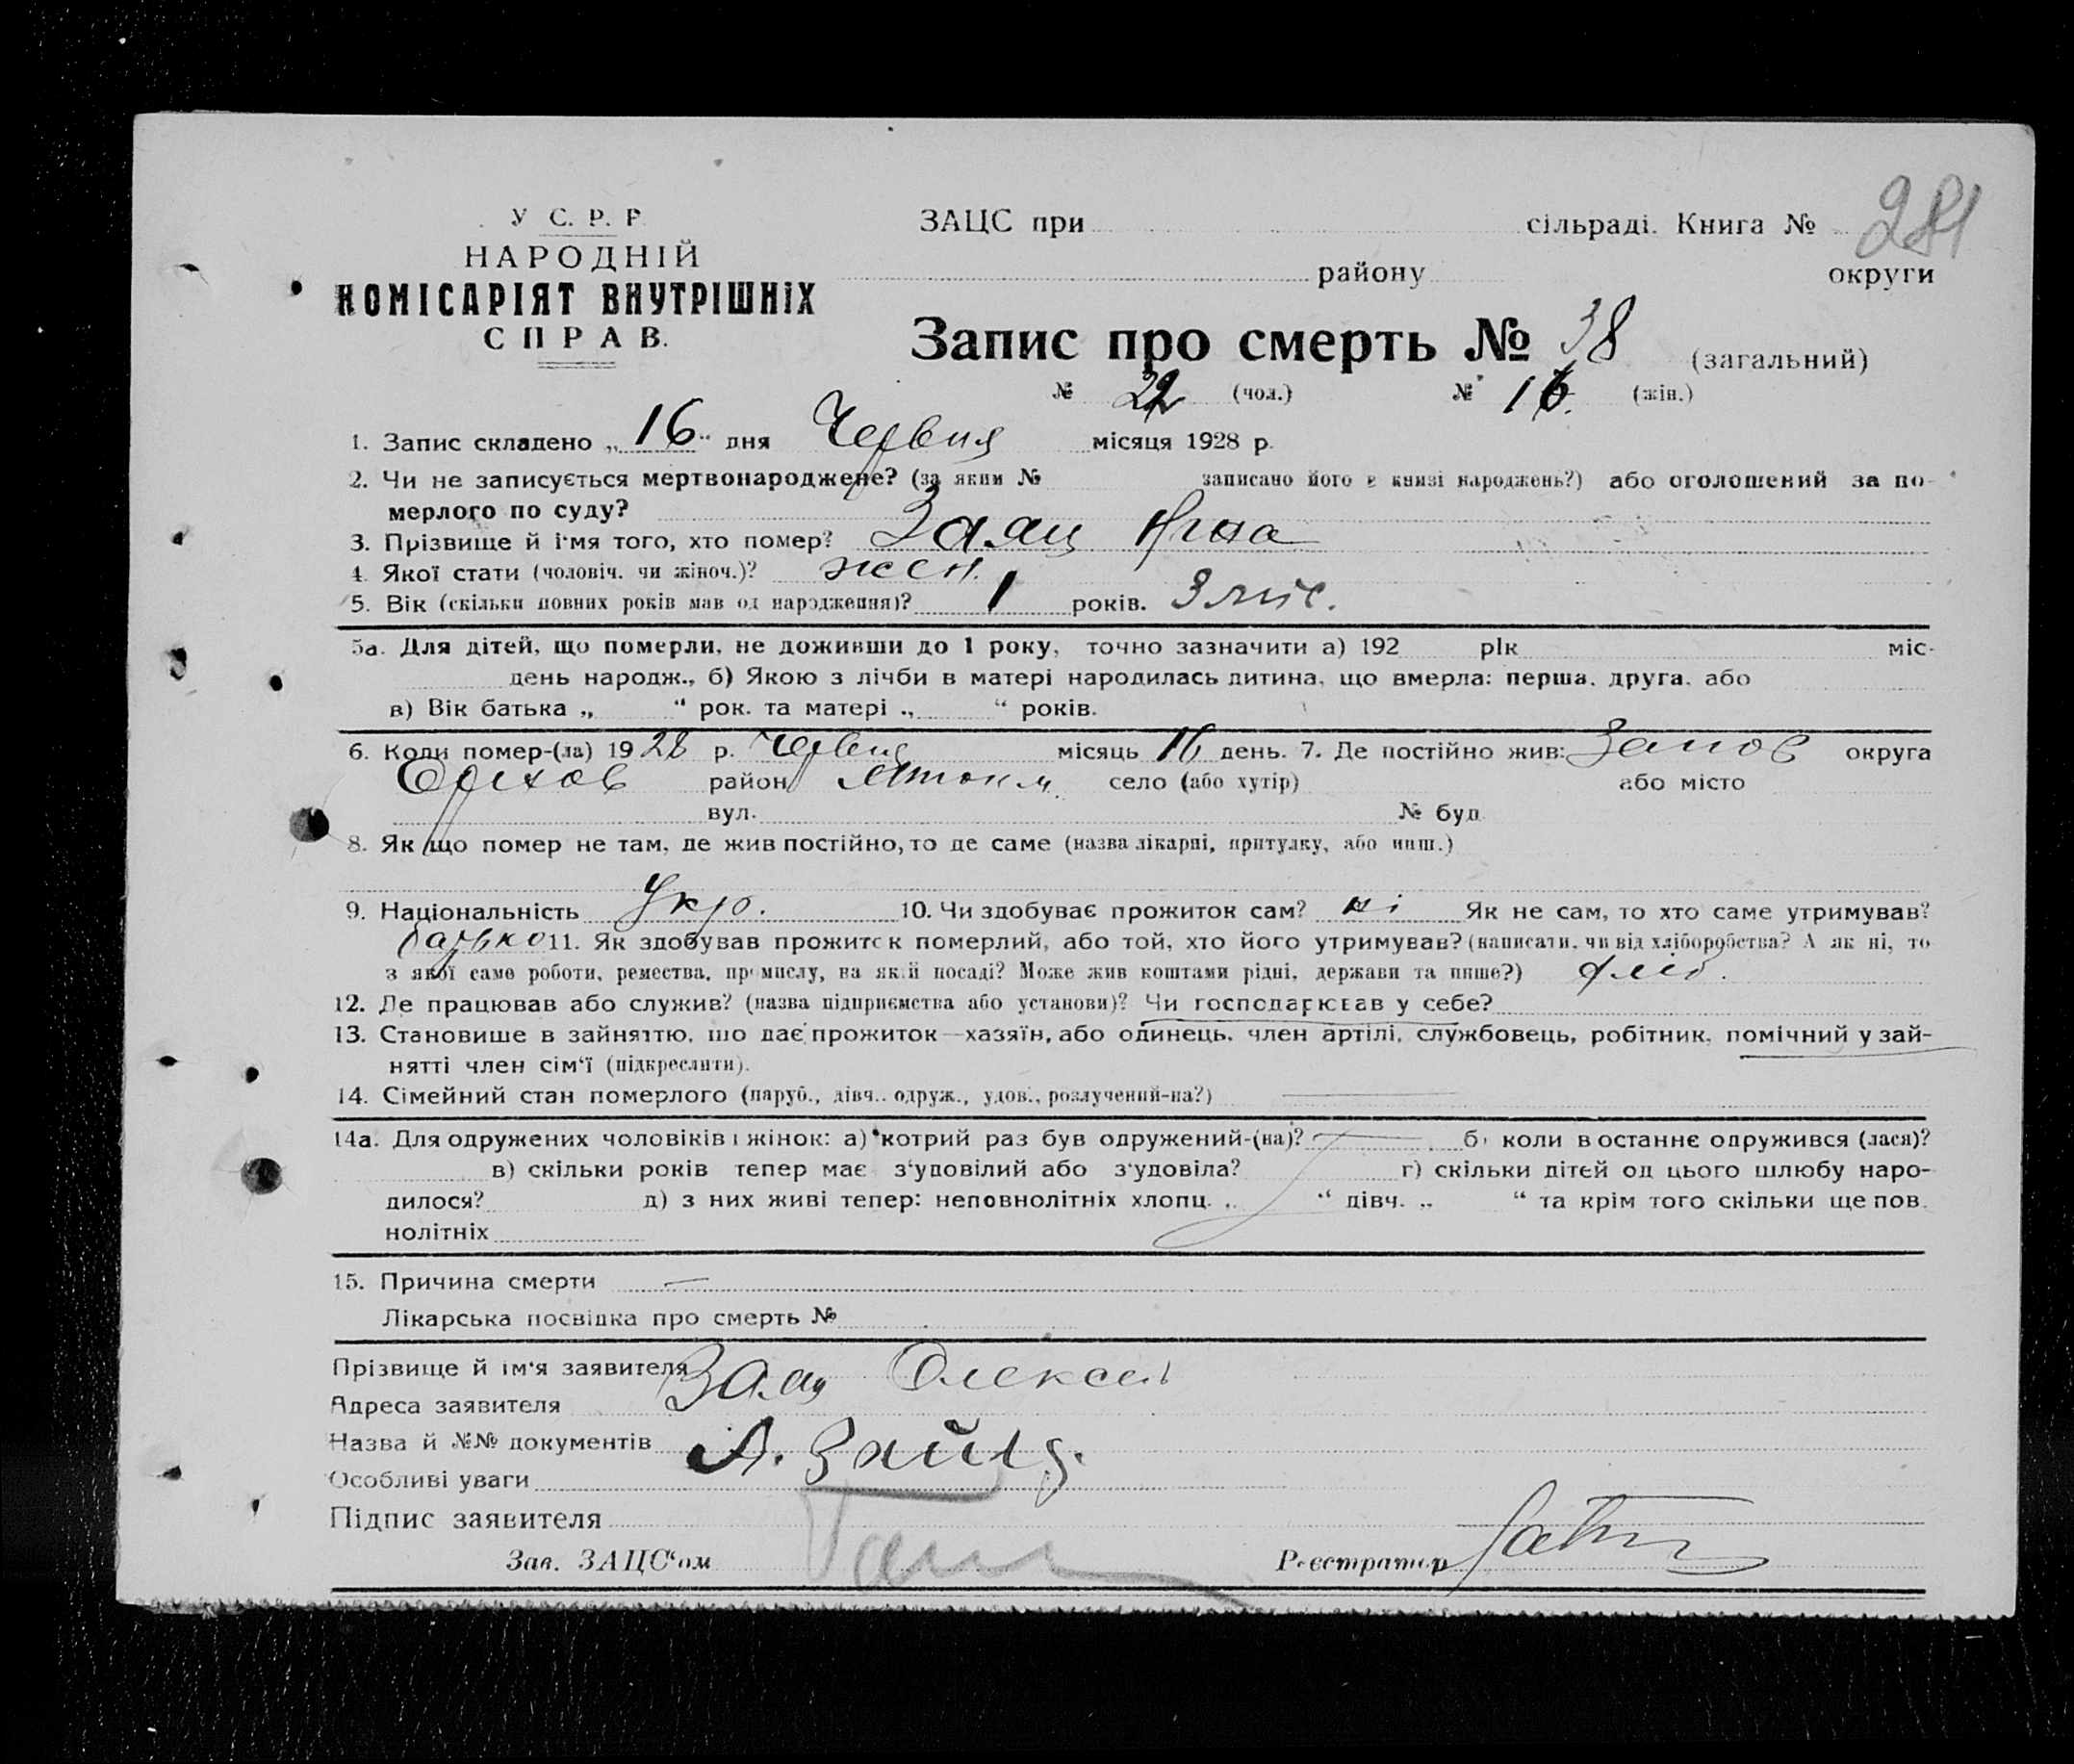 У С. Р. Р.
НАРОДНІЙ
КОМІСАРІЯТ ВНУТРІШНІХ
СПРАВ.
ЗАЦС при сільраді. Книга № 281
району округи
Запис про смерть № 38 (загальний)
№ 22 (чол.) № 16. (жін.)
1. Запис складено „16“ дня Червня місяця 1928 р.
2. Чи не записується мертвонароджене? (за яким № записано його в книзі народжень?) або оголошений за по-
мерлого по суду?
3. Прізвище й і'мя того, хто помер? Заяц Ірина
4. Якої стати (чоловіч. чи жіноч.)? жен.
5. Вік (скільки повних років мав од народження)? 1 років. 3 міс.
5а. Для дітей, що померли, не доживши до 1 року, точно зазначити а) 192 рік міс-
день народж., б) Якою з лічби в матері народилась дитина, що вмерла: перша, друга, або
в) Вік батька „ “ рок. та матері „ “ років.
6. Коли помер-(ла) 1928 р. Червня місяць 16 день. 7. Де постійно жив: Запов округа
Оріхов район село (або хутір) або місто
вул. № буд.
8. Як що помер не там, де жив постійно, то де саме (назва лікарні, притулку, або инш.)
9. Національність Укр. 10. Чи здобуває прожиток сам? ні Як не сам, то хто саме утримував?
батько 11. Як здобував прожиток померлий, або той, хто його утримував? (написати, чи від хліборобства? А як ні, то
з якої саме роботи, ремества, промислу, на якій посаді? Може жив коштами рідні, держави та инше?) хліб.
12. Де працював або служив? (назва підприємства або установи)? Чи господарював у себе?
13. Становище в зайняттю, що дає прожиток—хазяїн, або одинець, член артілі, службовець, робітник, помічний у зай-
нятті член сім'ї (підкреслити).
14. Сімейний стан померлого (паруб., дівч.. одруж., удов., розлучений-на?)
14а. Для одружених чоловіків і жінок: а) котрий раз був одружений-(на)? б) коли в останнє одружився (лася)?
в) скільки років тепер має з'уповілий або з'удовіла? г) скільки дітей од цього шлюбу наро-
дилося? д) з них живі тепер: неповнолітніх хлопц. „ “ дівч. „ “ та крім того скільки ще пов.
нолітніх
15. Причина смерти —
Лікарська посвідка про смерть №
Прізвище й ім'я заявителя Заяц Олексей
Адреса заявителя
Назва й №№ документів А. Зайцъ.
Особливі уваги
Підпис заявителя
Зав. ЗАЦС'ом Реєстратор